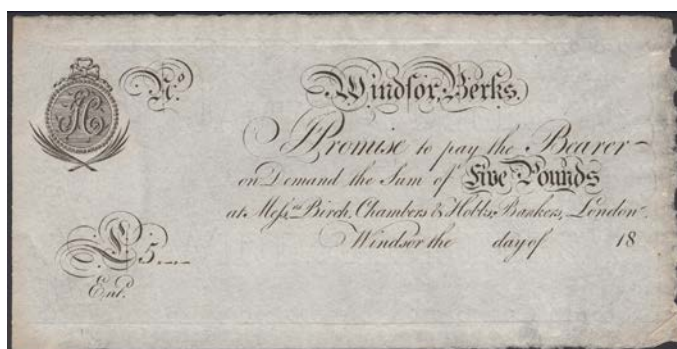 No.
Windsor, Berks.
I Promise to pay the Bearer
on Demand the Sum of Five Pounds
at Messrs Birch, Chambers & Hobbs, Bankers, London.
Windsor the day of 18
£5
Ent.